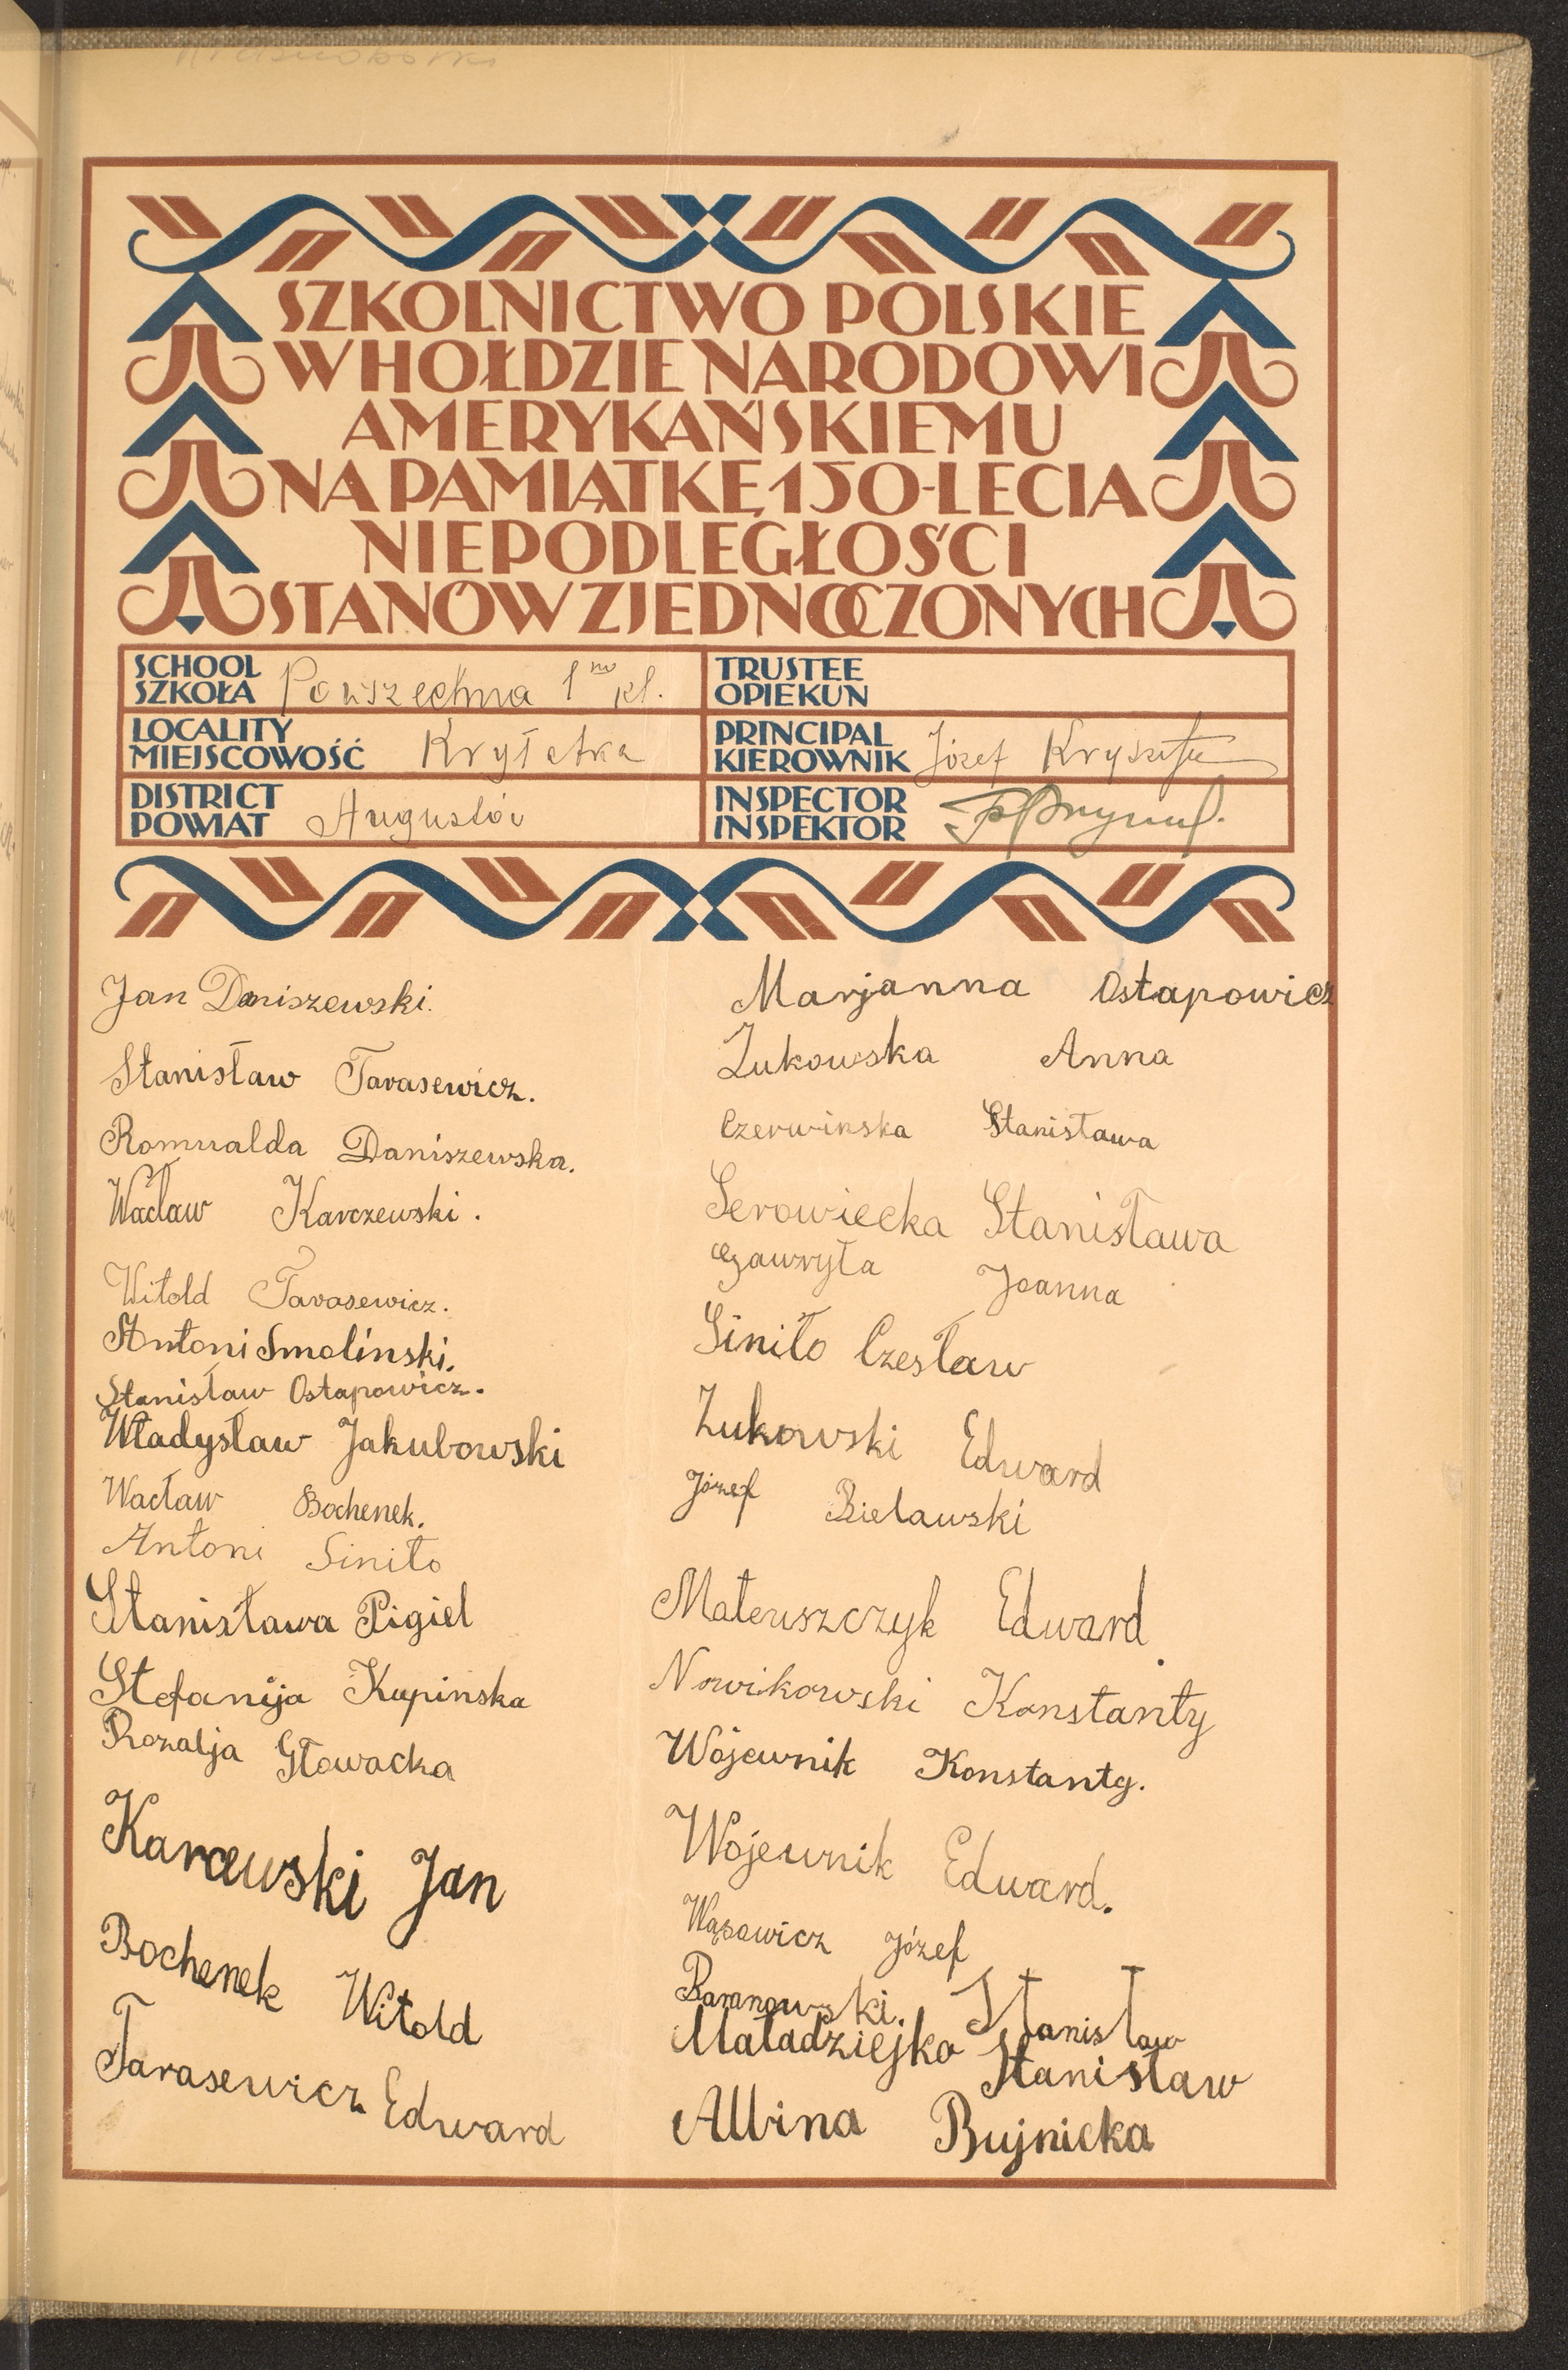 SZKOLNICTWO POLSKIE
W HOŁDZIE NARODOWI
AMERYKAŃSKIEMU
NA PAMIĄTKĘ 150-LECIA
NIEPODLEGŁOŚCI
STANÓW ZJEDNOCZONYCH
SCHOOL
SZKOŁA Powszechna 1 no kl.
TRUSTEE
OPIEKUN
LOCALITY
MIEJSCOWOŚĆ Kryłatka
PRINCIPAL
KIEROWNIK Józef
DISTRICT
POWIAT Augustów
INSPECTOR
INSPEKTOR
Jan Daniszewski.
Stanisław Tarasewicz.
Romualda Daniszewska.
Wacław Karczewski.
Witold Tarasewicz.
Antoni Smolinski.
Stanisław Ostapowicz.
Władysław Jakubowski
Wacław Bochenek.
Antoni Siniło
Stanisława Pigiel
Stefanija Kupinska
Rozalja Głowacka
Karcewski Jan
Bochenek Witold
Tarasewicz Edward
Marjanna Ostapowicz
Żukowska Anna
Czerwinska Stanisława
Serowiecka Stanisława
Gawryła Joanna
Siniło Czesław
Żukowski Edward
Józef Bielawski
Mateuszczyk Edward.
Nowikowski Konstanty
Wojewnik Konstanty.
Wojewnik Edward.
Wąsowicz Józef
Baranowski. Stanisław
Maładziejko Stanisław
Albina Bujnicka